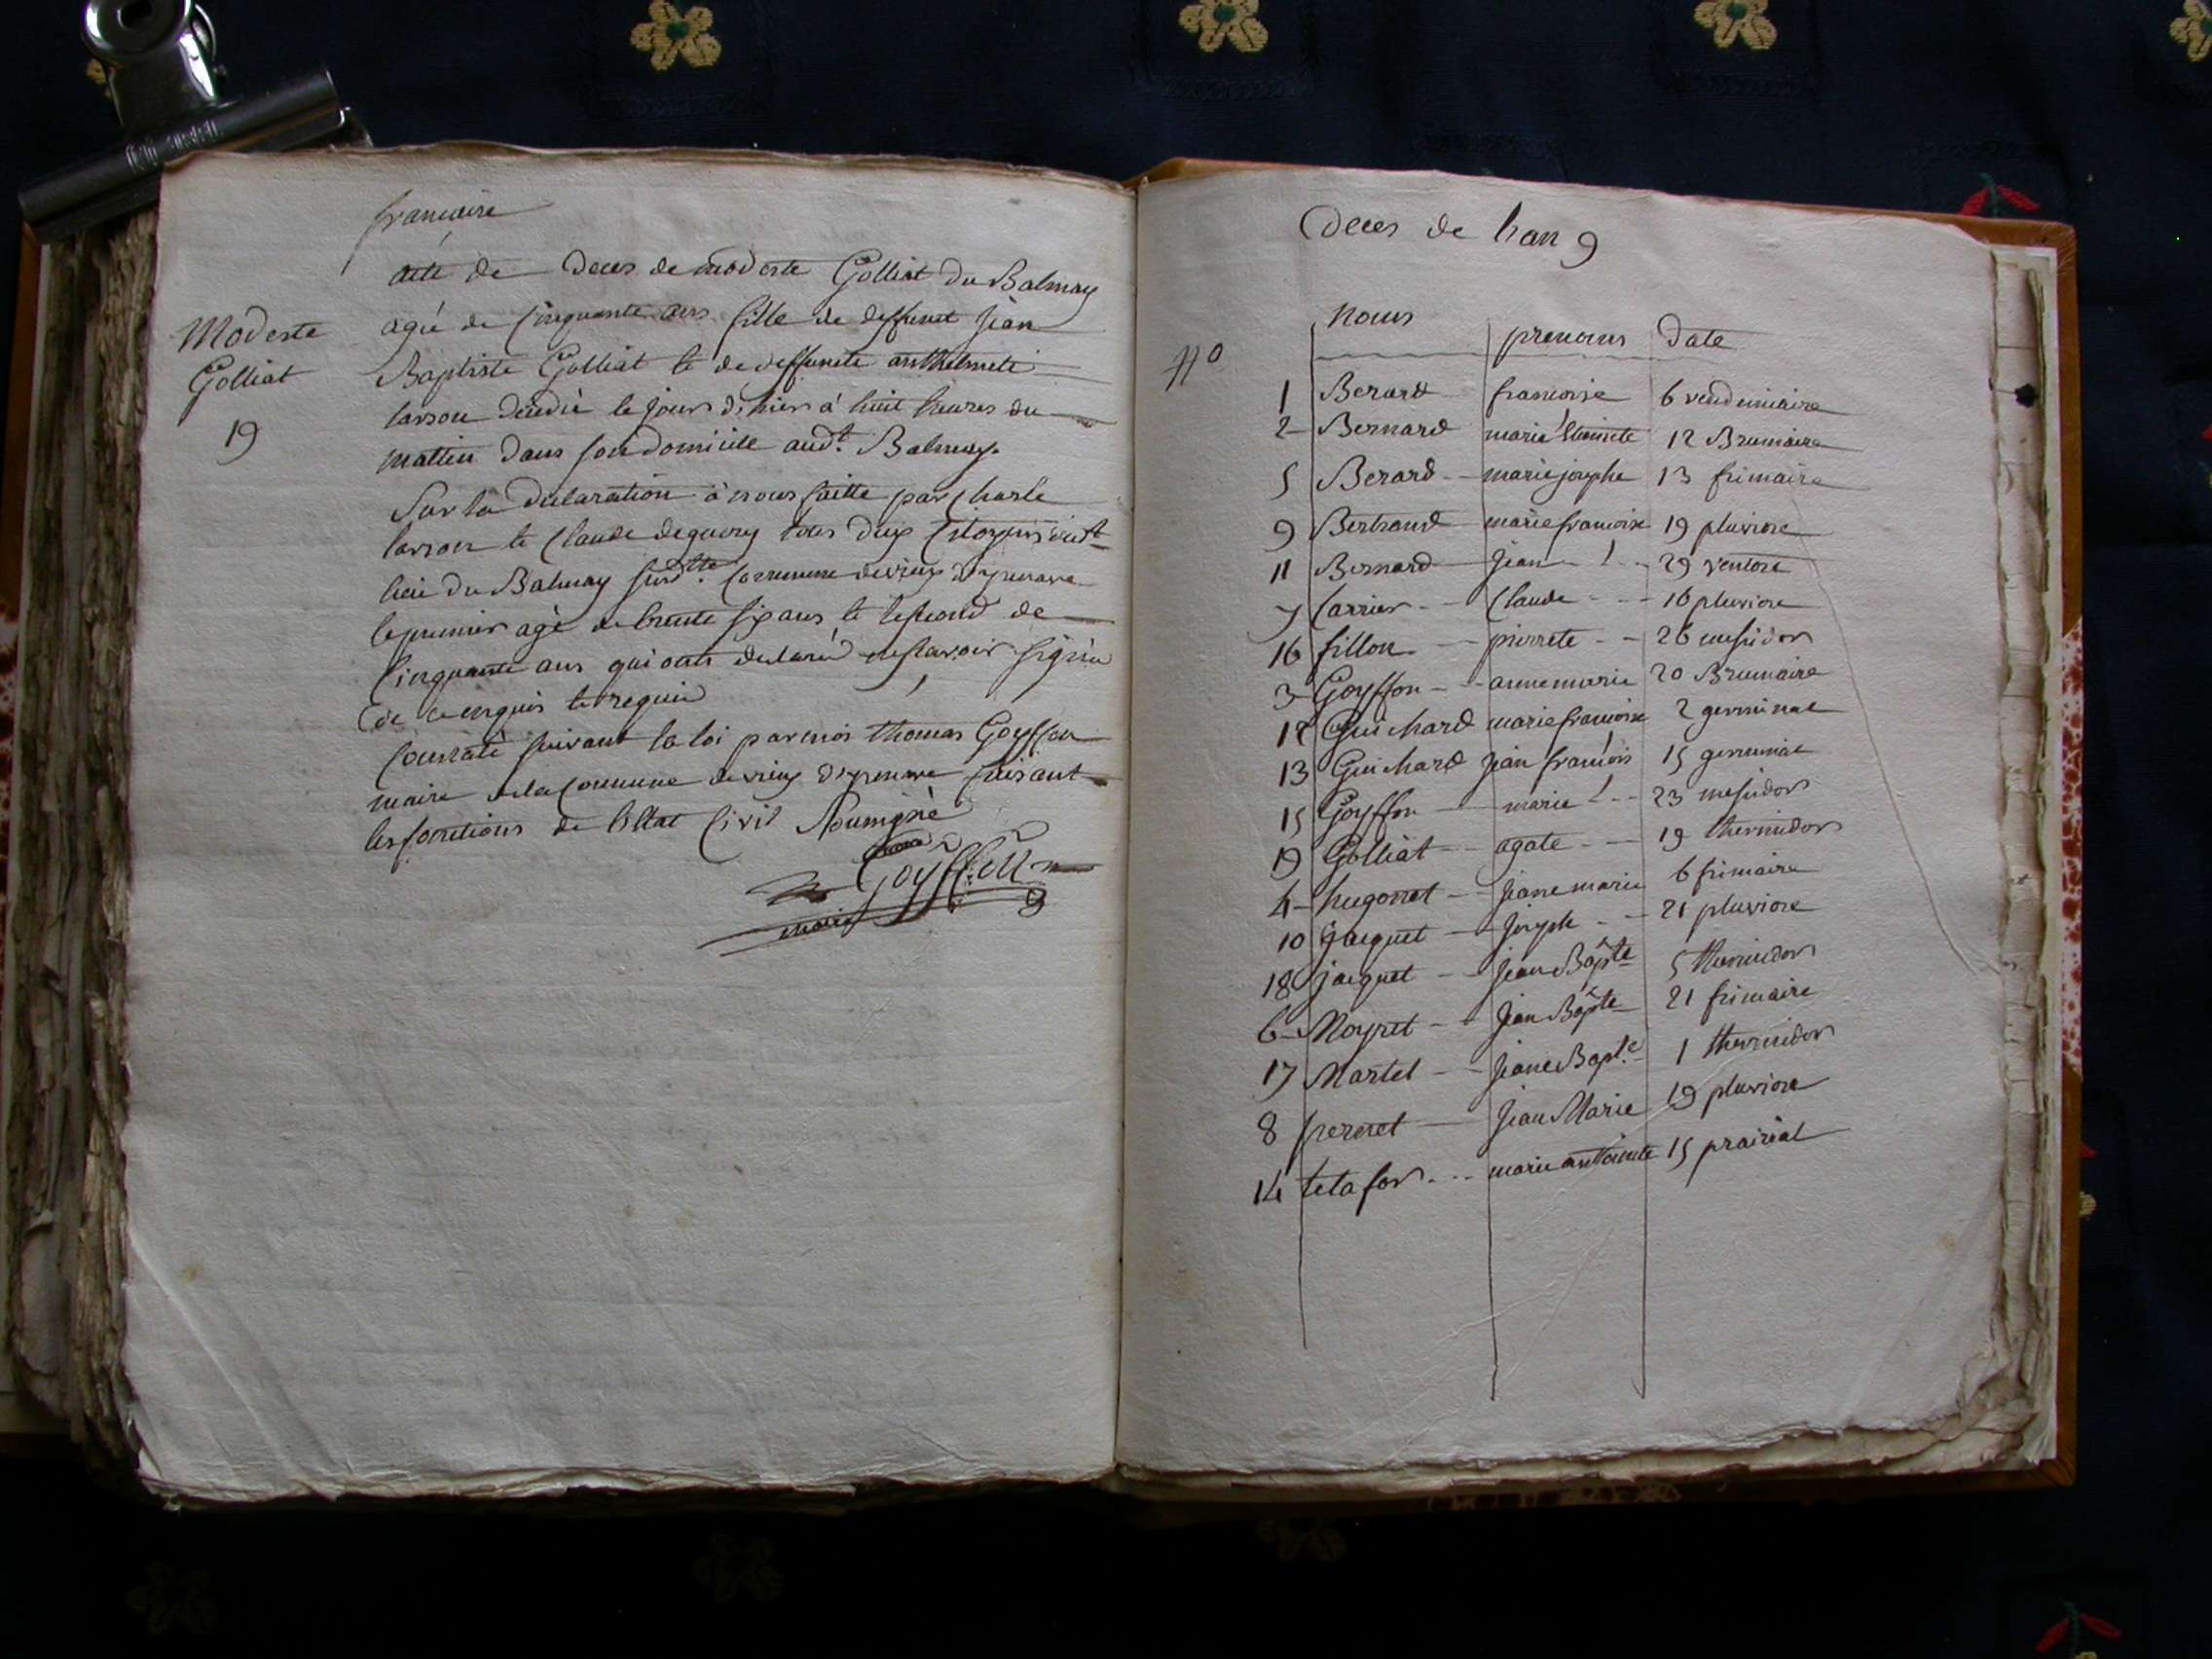 francoise
acte de Deces de modeste Golliat du Balmay
Modeste
Golliat
19
ageé de Cinquante ans fille de deffunct Jean
Baptiste Golliat et de deffuncte anthelmete
larson décédé le jour d'hier à huit heures du
mattin dans son domicile aud.t Balmay.
Sur la déclaration à nous faitte par Charle
larson et Claude deguery tous deux Citoyens
lieu du Balmay susd.tte Commune devieux d'yzenave
le premier agé de trente six ans et le segond de
Cinquante ans qui ont declaré ne savoir signé
de ce enquis et requis
Constaté suivant la loi par moi thomas Goyffon
maire de la Commune devieux d'yzenave faisant
les fonctions de l'Etat Civil Soussigné
Goyffon
maire
Deces de l'an 9
No noms prenoms Date
1 Berard francoise 6 vendemiaire
2 Bernard marie 12 Brumaire
5 Berard marie josephe 13 frimaire
9 Bertrand marie francoise 19 pluviose
11 Bernard Jean 29 ventose
7 Carrier Claude 16 pluviose
16 fillon pierrete 26 messidor
3 Goyffon anne marie 20 Brumaire
12 Guichard marie francoise 2 germinal
13 Guichard jean francois 15 germinal
15 Goyffon marie 23 messidor
19 Golliat agate 19 thermidor
4 hugonnet jeane marie 6 frimaire
10 jacquet Joseph 21 pluviose
18 jacquet Jean Bapte 5 thermidor
6 Moyret Jean Bapte 21 frimaire
17 Martel Jeane Bapt.e 1 thermidor
8 perret Jean Marie 19 pluviose
14 tetafor marie antoinete 15 prairial